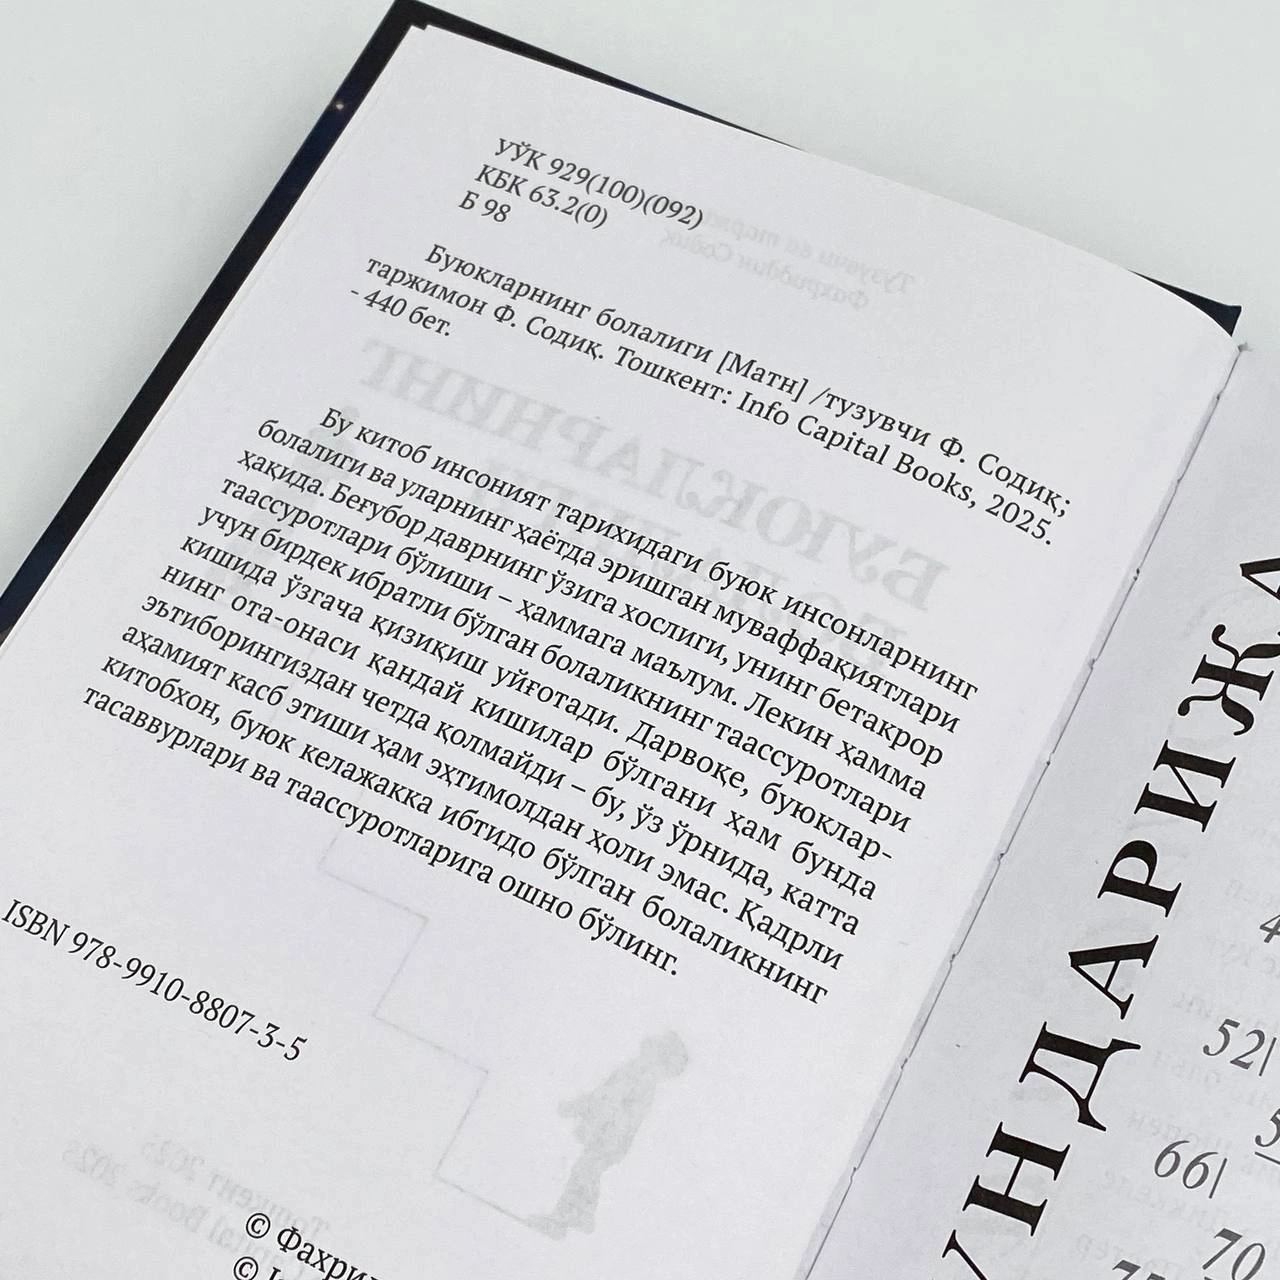 УЎК 929(100)(092)
КБК 63.2(0)
Б 98
Буюкларнинг болалиги [Матн] /тузувчи Ф. Содиқ;
таржимон Ф. Содиқ. Тошкент: Info Capital Books, 2025.
- 440 бет.
Бу китоб инсоният тарихидаги буюк инсонларнинг
болалиги ва уларнинг ҳаётда эришган муваффақиятлари
ҳақида. Беғубор даврнинг ўзига хослиги, унинг бетакрор
таассуротлари бўлиши – ҳаммага маълум. Лекин ҳамма
учун бирдек ибратли бўлган болаликнинг таассуротлари
кишида ўзгача қизиқиш уйғотади. Дарвоқе, буюклар-
нинг ота-онаси қандай кишилар бўлгани ҳам бунда
эътиборингиздан четда қолмайди – бу, ўз ўрнида, катта
аҳамият касб этиши ҳам эҳтимолдан ҳоли эмас. Қадрли
китобхон, буюк келажакка ибтидо бўлган болаликнинг
тасаввурлари ва таассуротларига ошно бўлинг.
ISBN 978-9910-8807-3-5
© Фахри
©
УНДАРИЖА
52|
66|
70